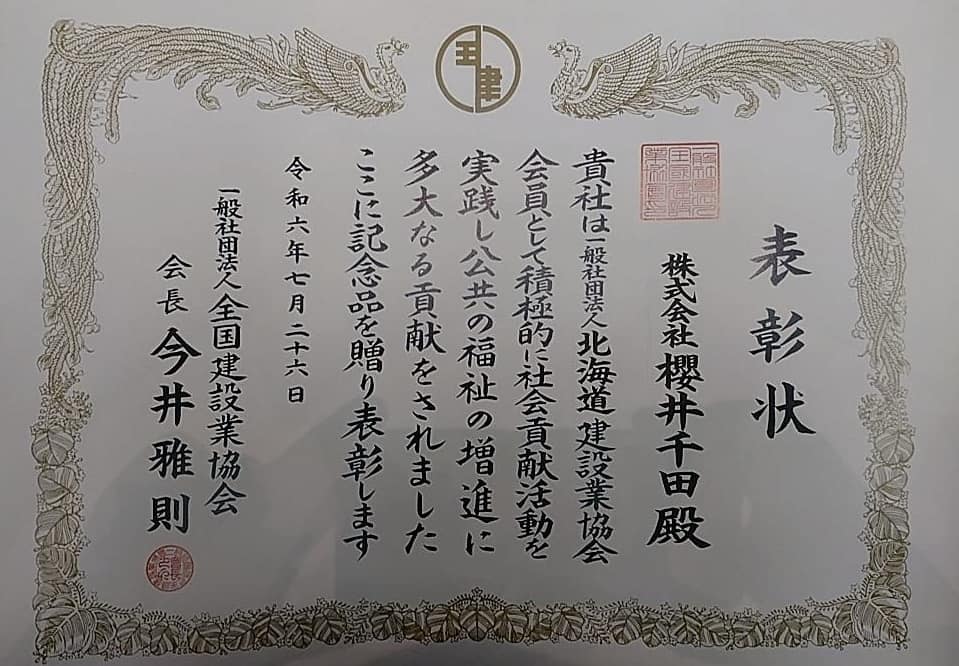 表彰状
株式会社 櫻井千田 殿
貴社は一般社団法人北海道建設業協会
会員として積極的に社会貢献活動を
実践し公共の福祉の増進に
多大なる貢献をされました
ここに記念品を贈り表彰します
令和六年七月二十六日
一般社団法人全国建設業協会
会長 今井雅則